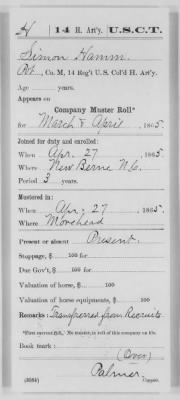 H | 14 H. Art'y. | U.S.C.T.
Simon Hamm
Pvt., Co. M, 14 Reg't U. S. Col'd H. Art'y.
Age years.
Appears on
Company Muster Roll*
for March & April, 1865.
Joined for duty and enrolled:
When Apr. 27, 1865.
Where New Berne N.C.
Period 3 years.
Mustered in:
When Apr. 27, 1865.
Where Morehead
Present or absent Present
Stoppage, $ 100 for
Due Gov't, $ 100 for
Valuation of horse, $ 100
Valuation of horse equipments, $ 100
Remarks: Transferred from Recruits
Book mark:
(Over)
Palmer
(358d) Copyist.